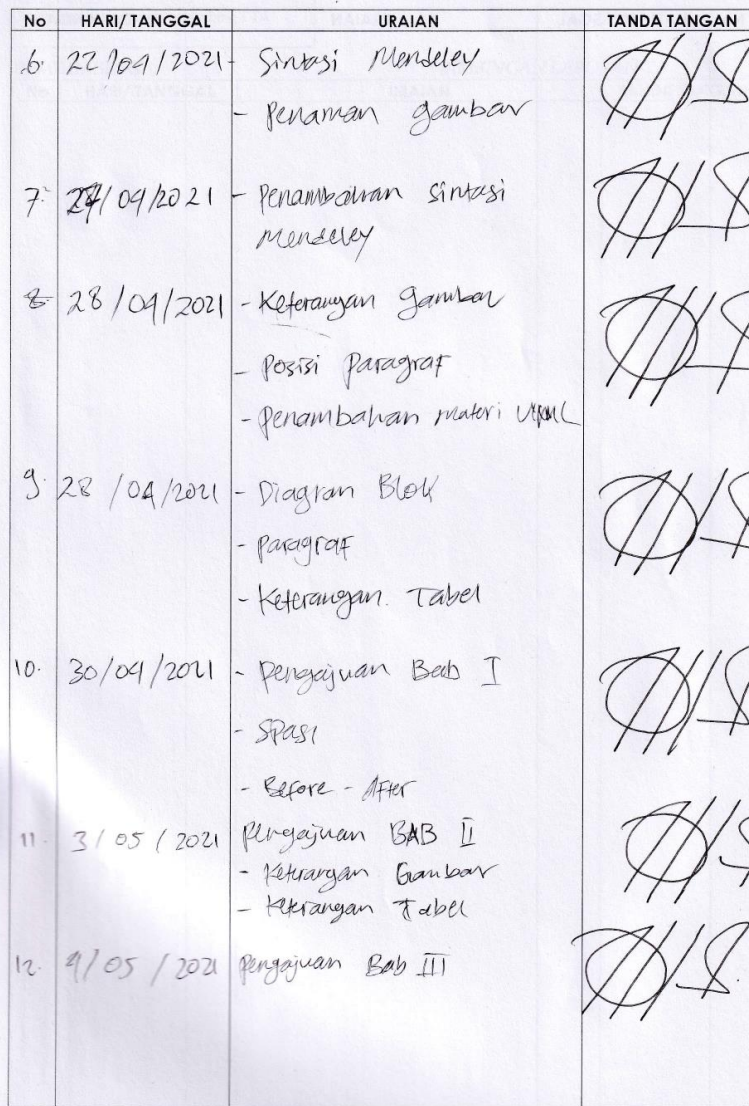 No HARI/ TANGGAL URAIAN TANDA TANGAN
6. 22/04/2021 - Sintasi Mendeley
- Penaman gambar
7. 27/04/2021 - Penambahan Sintasi
Mendeley
8 28/04/2021 - Keterangan gambar
- Posisi Paragraf
- Penambahan materi
9. 28/04/2021 - Diagram Blok
- Paragraf
- Keterangan. Tabel
10. 30/04/2021 - Pengajuan Bab I
- Spasi
- Before - After
11. 3/05/2021 Pengajuan BAB II
- Keterangan Gambar
- Keterangan Tabel
12. 4/05/2021 Pengajuan Bab III